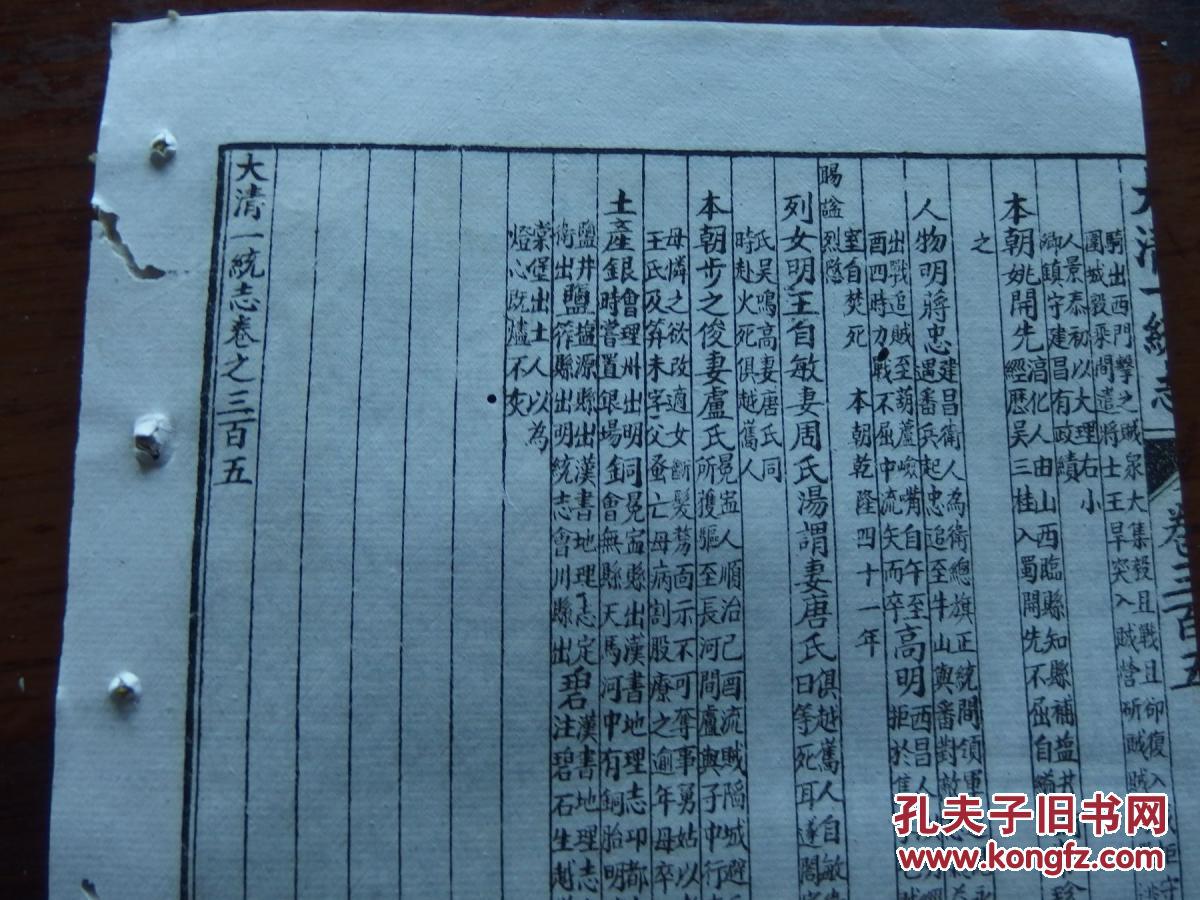 騎出西門擊之賊衆大集毅且戰且卻復入
圍城毅乘間遣將士王旱突入賊營斫賊
人景泰初以大理右小
卿鎮守建昌有政績
本朝姚開先湻化人由山西臨縣知縣補盐井
經歷吴三桂入蜀開先不屈自縊
之
人物明蔣忠建昌衛人為衛總旗正統間領軍
遇番兵起忠追至牛山與番對敵
出戰追賊至葫蘆崄嘴自午至
酉四時力戰不屈中流矢而卒高明西昌人
拒於
室自焚死 本朝乾隆四十一年
賜諡烈愍
列女明王自敏妻周氏湯謂妻唐氏俱越嶲人自敏
曰等死耳遂闔
氏吴鳴高妻唐氏同
時赴火死俱越嶲人
本朝步之俊妻盧氏冕寧人順治己酉流賊陷城避
所獲驅至長河間盧與子中行
母憐之欲改適女斷髮剺面示不可奪事舅姑以
王氏及笄未字父蚤亡母病割股療之逾年母卒
土產銀會理州出明同冕寧縣出漢書地理志邛都
時嘗置銀場金會無縣天馬河中有銅胎明
鹽井盬源縣出漢書地理志定碧漢書地理志
衛出鹽筰縣出明統志會川縣出注碧石生越
棠堡出土人以為
燈心既爐不灰
大清一統志卷之三百五
大清一統志
卷三百五
孔夫子旧书网
www.kongfz.com